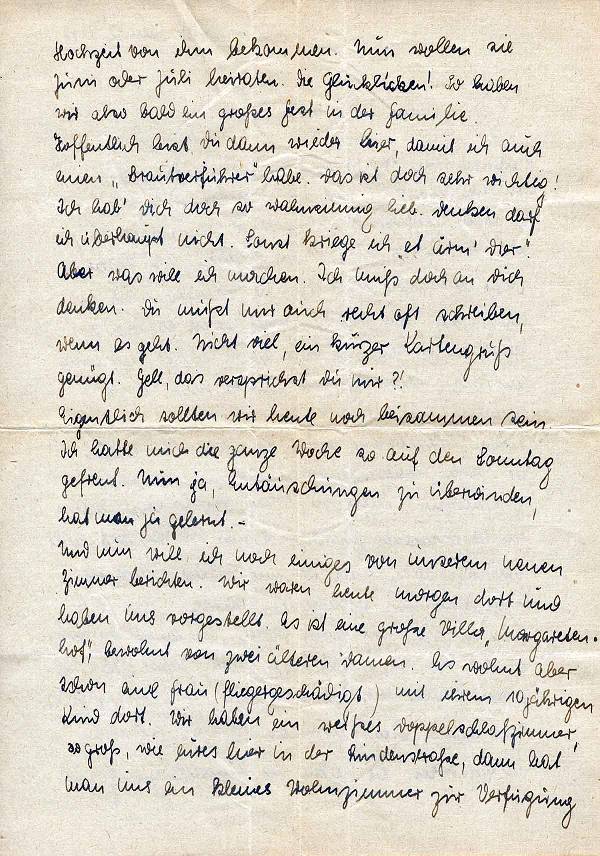 Hochzeit von ihm bekommen. Nun wollen sie
Juni oder Juli heiraten. Die Glücklichen! So haben
wir also bald ein großes Fest in der Familie.
Hoffentlich bist Du dann wieder hier, damit ich auch
einen „Brautverführer" habe. Das ist doch sehr wichtig!
Ich hab' Dich doch so wahnsinnig lieb. Denken darf
ich überhaupt nicht. Sonst kriege ich et ärm' Dier".
Aber was will ich machen. Ich muß doch an Dich
denken. Du mußt mir auch recht oft schreiben,
wenn es geht. Nicht viel, ein kurzer Kartengruß
genügt. Gell, das versprichst Du mir?!
Eigentlich sollten wir heute noch beisammen sein.
Ich hatte mich die ganze Woche so auf den Sonntag
gefreut. Nun ja, Entäuschungen zu überwinden,
hat man ja gelernt.-
Und nun will ich noch einiges von unserem neuen
Zimmer berichten. Wir waren heute morgen dort und
haben uns vorgestellt. Es ist eine große Villa „Margareten-
hof", bewohnt von zwei älteren Damen. Es wohnt aber
schon eine Frau (fliegergeschädigt) mit ihrem 10 jährigen
Kind dort. Wir haben ein weißes Doppelschlafzimmer,
so groß, wie eures hier in der Lindenstraße, dann hat
man uns ein kleines Wohnzimmer zur Verfügung